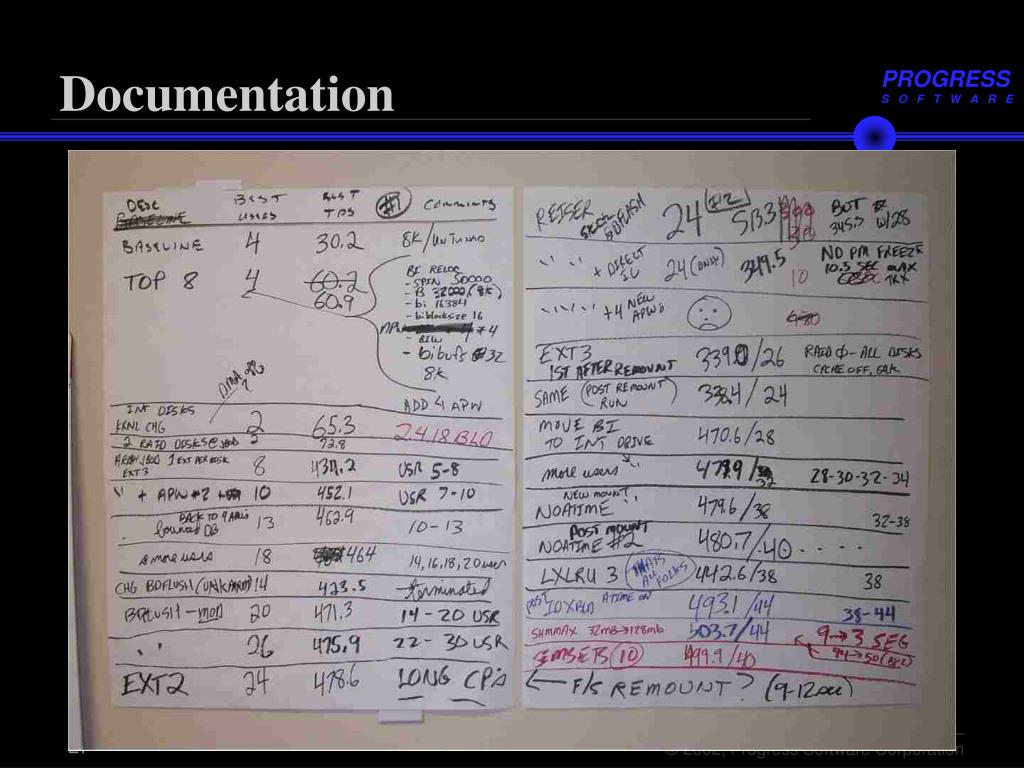 Documentation
PROGRESS
SOFTWARE
DESC BEST USERS BEST TPS #1 COMMENTS
BASELINE
BASELINE 4 30.2 8K/UNTUNED
TOP 8 4 60.2
60.9
BI RELOC
- SPIN 50000
- B 32000 (8K)
- bi 16384
- biblocksize 16
#4
- BIW
- bibufs #32
8K
ADD 4 APW
INT DISKS
KRNL CHG 2 65.3 2.4.18 BLD
2 RAID DISKS@JBOD 2 72.8
1 EXT PER DISK
EXT3 8 434.2 USR 5-8
" + APW #2 10 452.1 USR 7-10
BACK TO 4 APW's
DB 13 462.9 10-13
more users 18 464 14,16,18,20 user
CHG BDFLUSH 14 423.5 terminated
BDFLUSH - mod 20 471.3 14-20 USR
" 26 475.9 22-30 USR
EXT2 24 478.6 LONG CP's
REISER BDFLASH 24 #2 SB3 BUT
345.5 W/28
" " + DIRECT IO 24 (ONLY) 349.5 10 NO PM FREEZE
10.5 SEC MAX
" " " " +4 NEW APW's 480
EXT3
1ST AFTER REMOUNT 339.0/26 RAID 0 - ALL DISKS
CACHE OFF, 64K
SAME (POST REMOUNT) RUN 338.4/24
MOVE BI
TO INT DRIVE 470.6/28
more users " 32 28-30-32-34
NEW MOUNT
NOATIME 479.6/38 32-38
POST MOUNT
NOATIME #2 480.7/40 . . . .
LXLRU 3 442.6/38 38
POST ATIME ON 493.1/44 38-44
SHMMAX 32mb→128mb 503.7/44 9→3 SEG
SEMSETS (10) 499.9/40 44→50
← F/S REMOUNT? (9-12sec)
© 2002, Progress Software Corporation